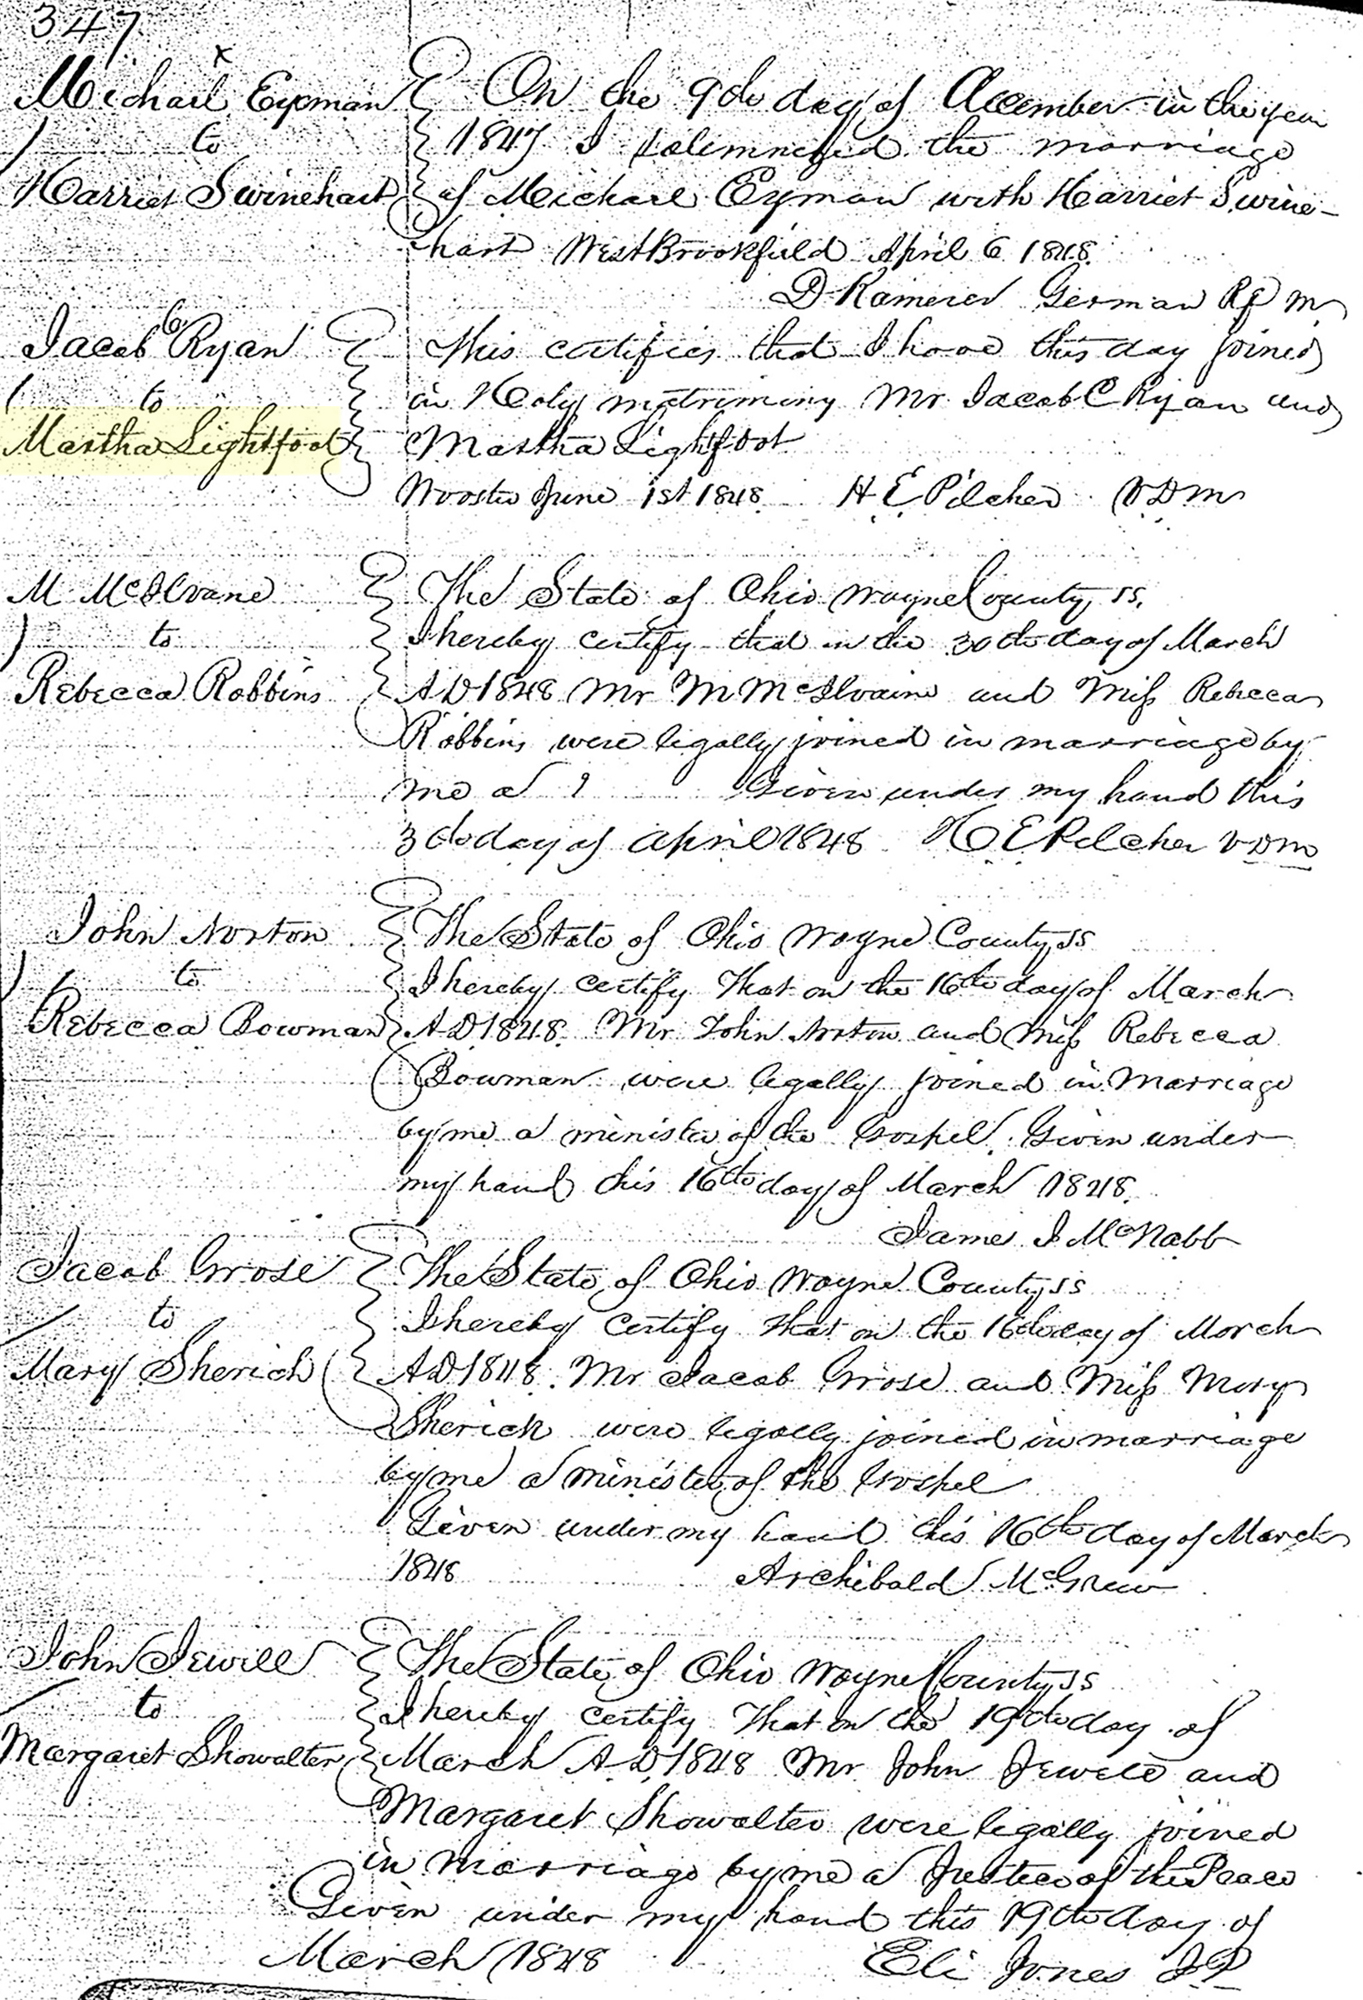 347
Michael Eyman
to
Harriet Swinehart
On the 9th day of December in the year
1847 I solemnized the marriage
of Michael Eyman with Harriet Swine-
hart West Brookfield April 6 1848
D Kamerer German Rf M
Jacob C Ryan
to
Martha Lightfoot
This certifies that I have this day joined
in Holy matrimony Mr Jacob C Ryan and
Martha Lightfoot
Wooster June 1st 1848 H E Pilcher VDM
M McIlvane
to
Rebecca Robbins
The State of Ohio Wayne County ss.
I hereby certify that on the 30th day of March
AD 1848 Mr M McIlvaine and Miss Rebecca
Robbins were legally joined in marriage by
me a Given under my hand this
3d day of April 1848 H E Pilcher VDM
John Norton
to
Rebecca Bowman
The State of Ohio Wayne County ss
I hereby certify that on the 16th day of March
AD 1848. Mr John Norton and Miss Rebecca
Bowman were legally joined in Marriage
by me a minister of the Gospel. Given under
my hand this 16th day of March 1848.
James I McNabb
Jacob Grose
to
Mary Sherich
The State of Ohio Wayne County ss
I hereby certify that on the 16th day of March
AD 1848. Mr Jacob Grose and Miss Mary
Sherich were legally joined in marriage
by me a minister of the Gospel
Given under my hand this 16th day of March
1848 Archibald McGrew
John Jewell
to
Margaret Showalter
The State of Ohio Wayne County ss
I hereby certify that on the 19th day of
March AD 1848 Mr John Jewell and
Margaret Showalter were legally joined
in marriage by me a Justice of the Peace
Given under my hand this 19th day of
March 1848 Eli Jones JP